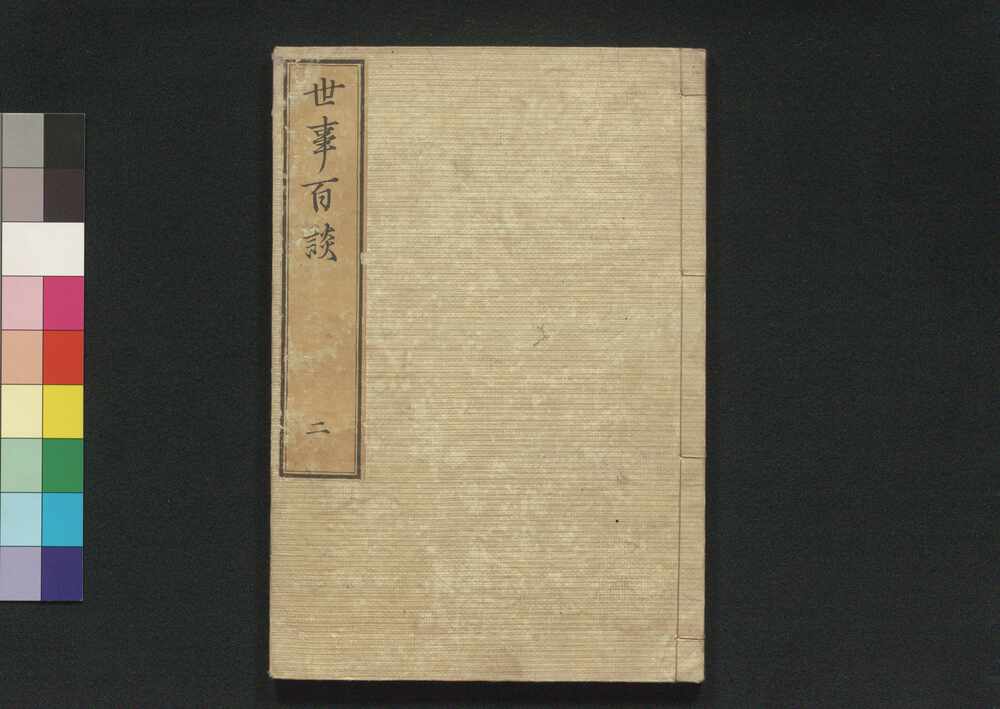 世事百談
二